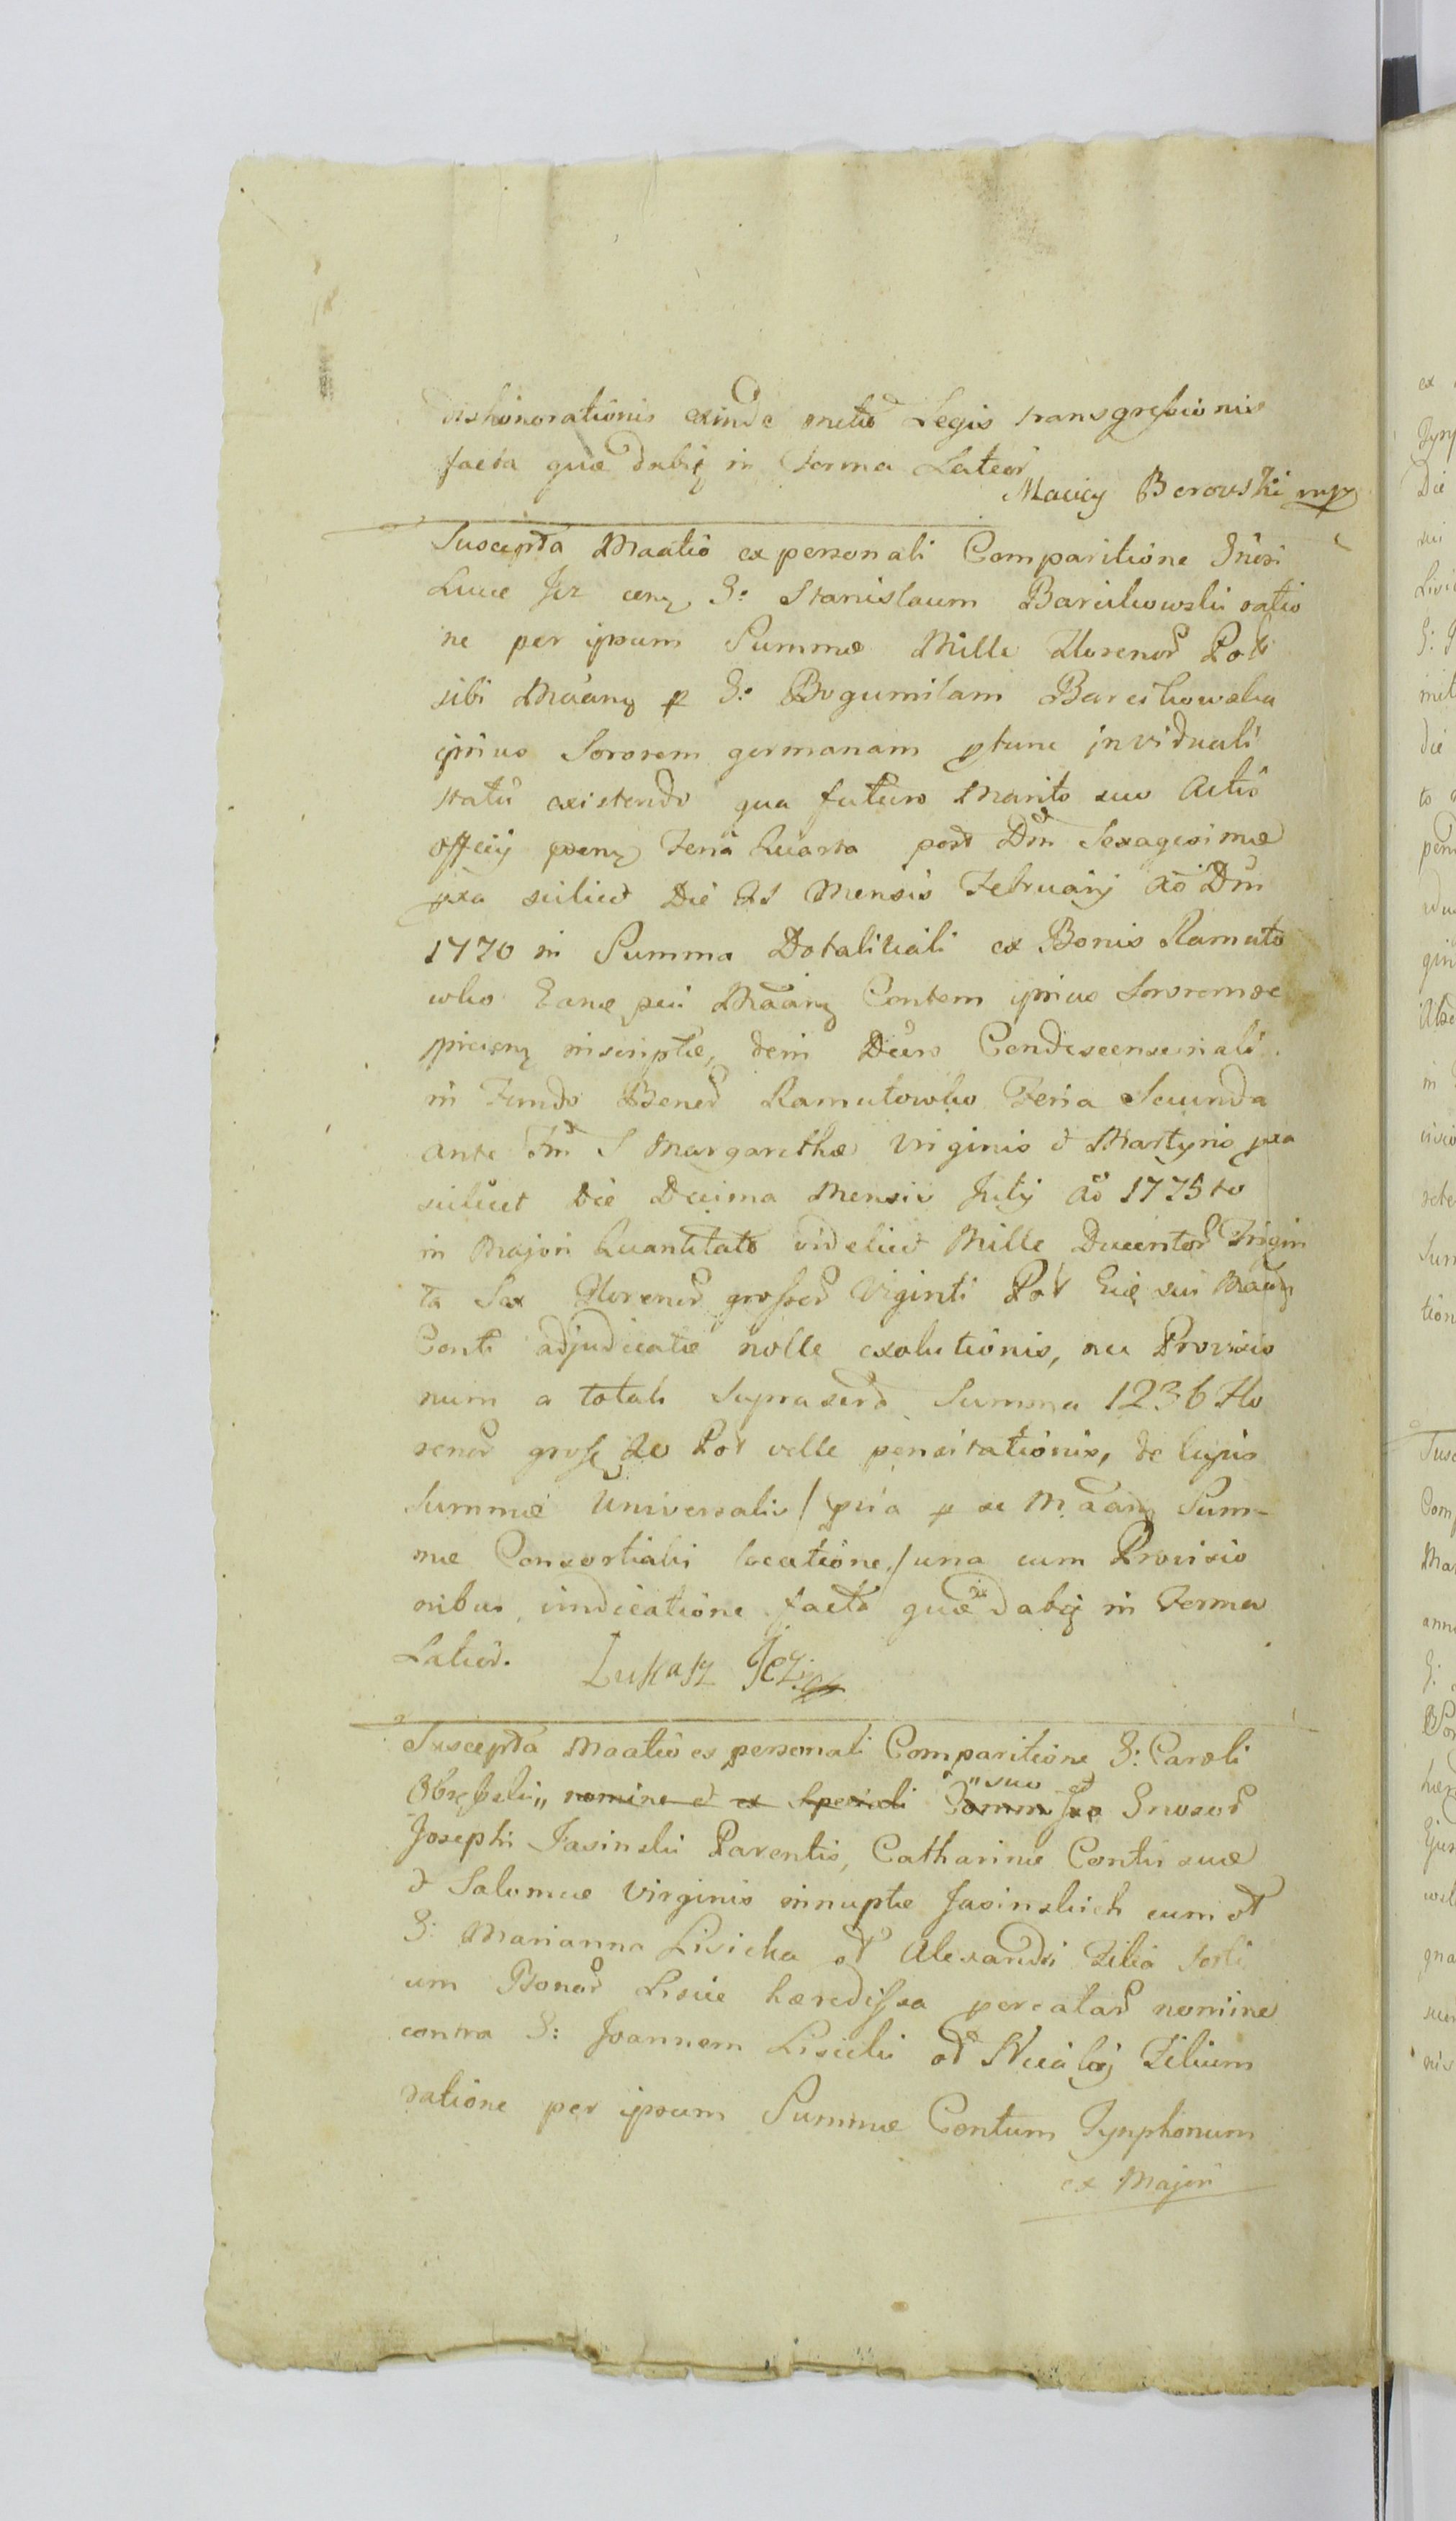 dishonorationis exinde metio Legis transgressionis
facta quae dabit in forma Latior
Maciey Borowski mp
Suscepta Maatio ex personali Comparitione Gnosi
Lucae Jez G: Stanislaum Barcikowski ratio
ne per ipsum Summae Mille Floreno Pol
sibi p G: Bogumilam Barcikowska
ipsius Sororem germanam ptunc in viduali
statu existendo qua futuro Marito suo Actis
officij Feria Quarta post Dm Sexagesimae
pxa scilicet Die 21 Mensis February Ao Dni
1770 in Summa Dotalitiali ex Bonis Ramuto
wko Contem ipsius Sororem
inscriptae, dein Decro Condescensionali
in Fundo Bonor Ramutowko Feria Secunda
ante Fm S Margarethae Virginis et Martyris pxa
scilicet Die Decima Mensis July Ao 1775to
in Majori Quantitate videlicet Mille Ducentor Trigin
ta Sex Florenor grossor Viginti Pol sui
Conti adjudicatae nolle exolutionis, nec Provisio
num a totali Suprascrip Summa 1236 Flo
renor gross 20 Pol velle pensitationis, de cujus
Summae Universalis / p se Sum-
mae Consortialis locatione / una cum Provisio
nibus vindicatione facta quae dabit in Forma
Latior. Lukasz Jez mp
Suscepta Maatio ex personali Comparitione G: Caroli
Obrębski,, nomine et ex Speciali " suo et Gnosor
Josephi Jasinski Parentis, Catharinae Contis suae
et Salomeae Virginis innuptae Jasinskich cum ol
G: Marianna Lisicka ol Alexandri Filia
um Bonor Lisice haeredissa nomine
contra G: Joannem Lisicki ol Filium
ratione per ipsum Summae Centum Tynphonum
ex Majori